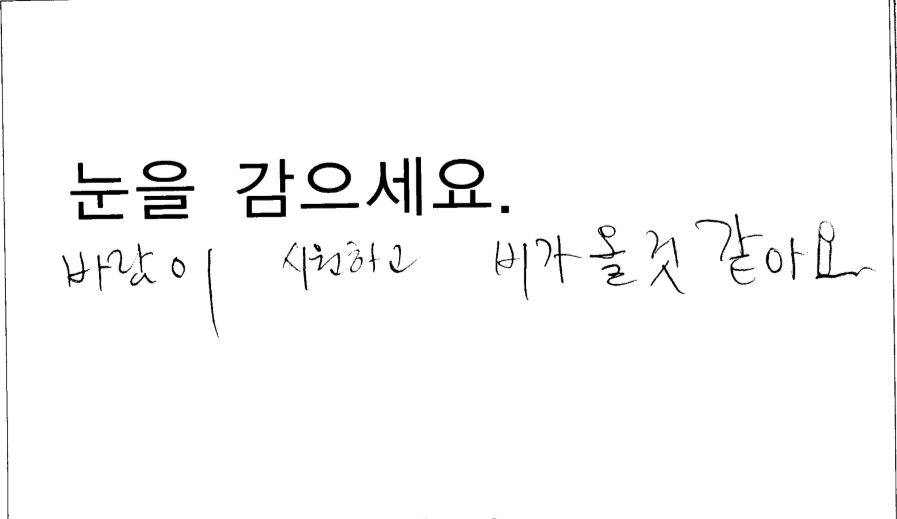 눈을 감으세요.
바람이 시원하고 비가 올것 같아요